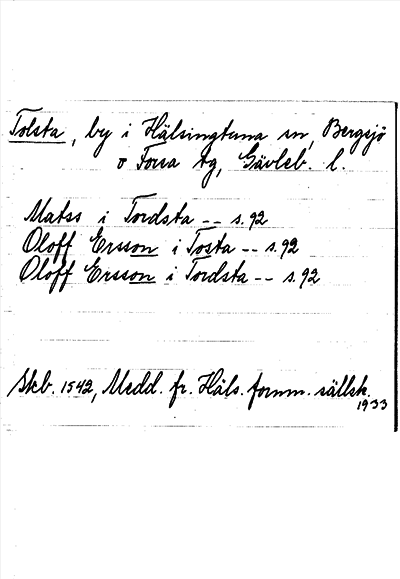 Tolsta, by i Hälsingtuna sn, Bergsjö
o Forsa tg, Gävleb. l.
Matss i Tordsta -- s. 92
Oloff Ersson i Tosta -- s. 92
Oloff Ersson i Tordsta -- s. 92
Skb. 1542, Medd. fr. Häls. fornm. sällsk.
1933